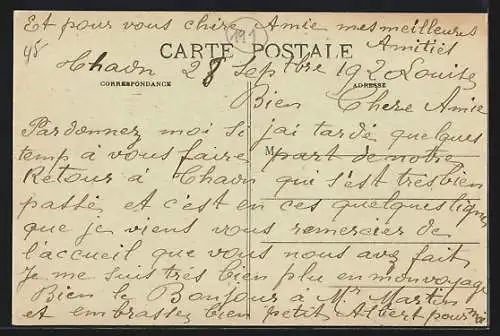 Et pour vous chère Amie mes meilleures
Amitiés
45
191
CARTE POSTALE
Thaon 28 Septbre 1920 Louise
CORRESPONDANCE
ADRESSE
Bien Chere Amie
Pardonnez moi si j'ai tardé quelques
M
temp à vous faire part de notre
Retour à Thaon qui s'est très bien
passé et c'est en ces quelques lignes
que je viens vous remercier de
l'accueil que vous nous avez fait
Je me suis très bien plu en mon voyage
Bien le Bonjour à Mr Martin
et embrassez bien petit Albert pour moi